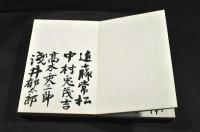 近藤常松
中村忠茂吉
高木英二郎
浅井郁太郎